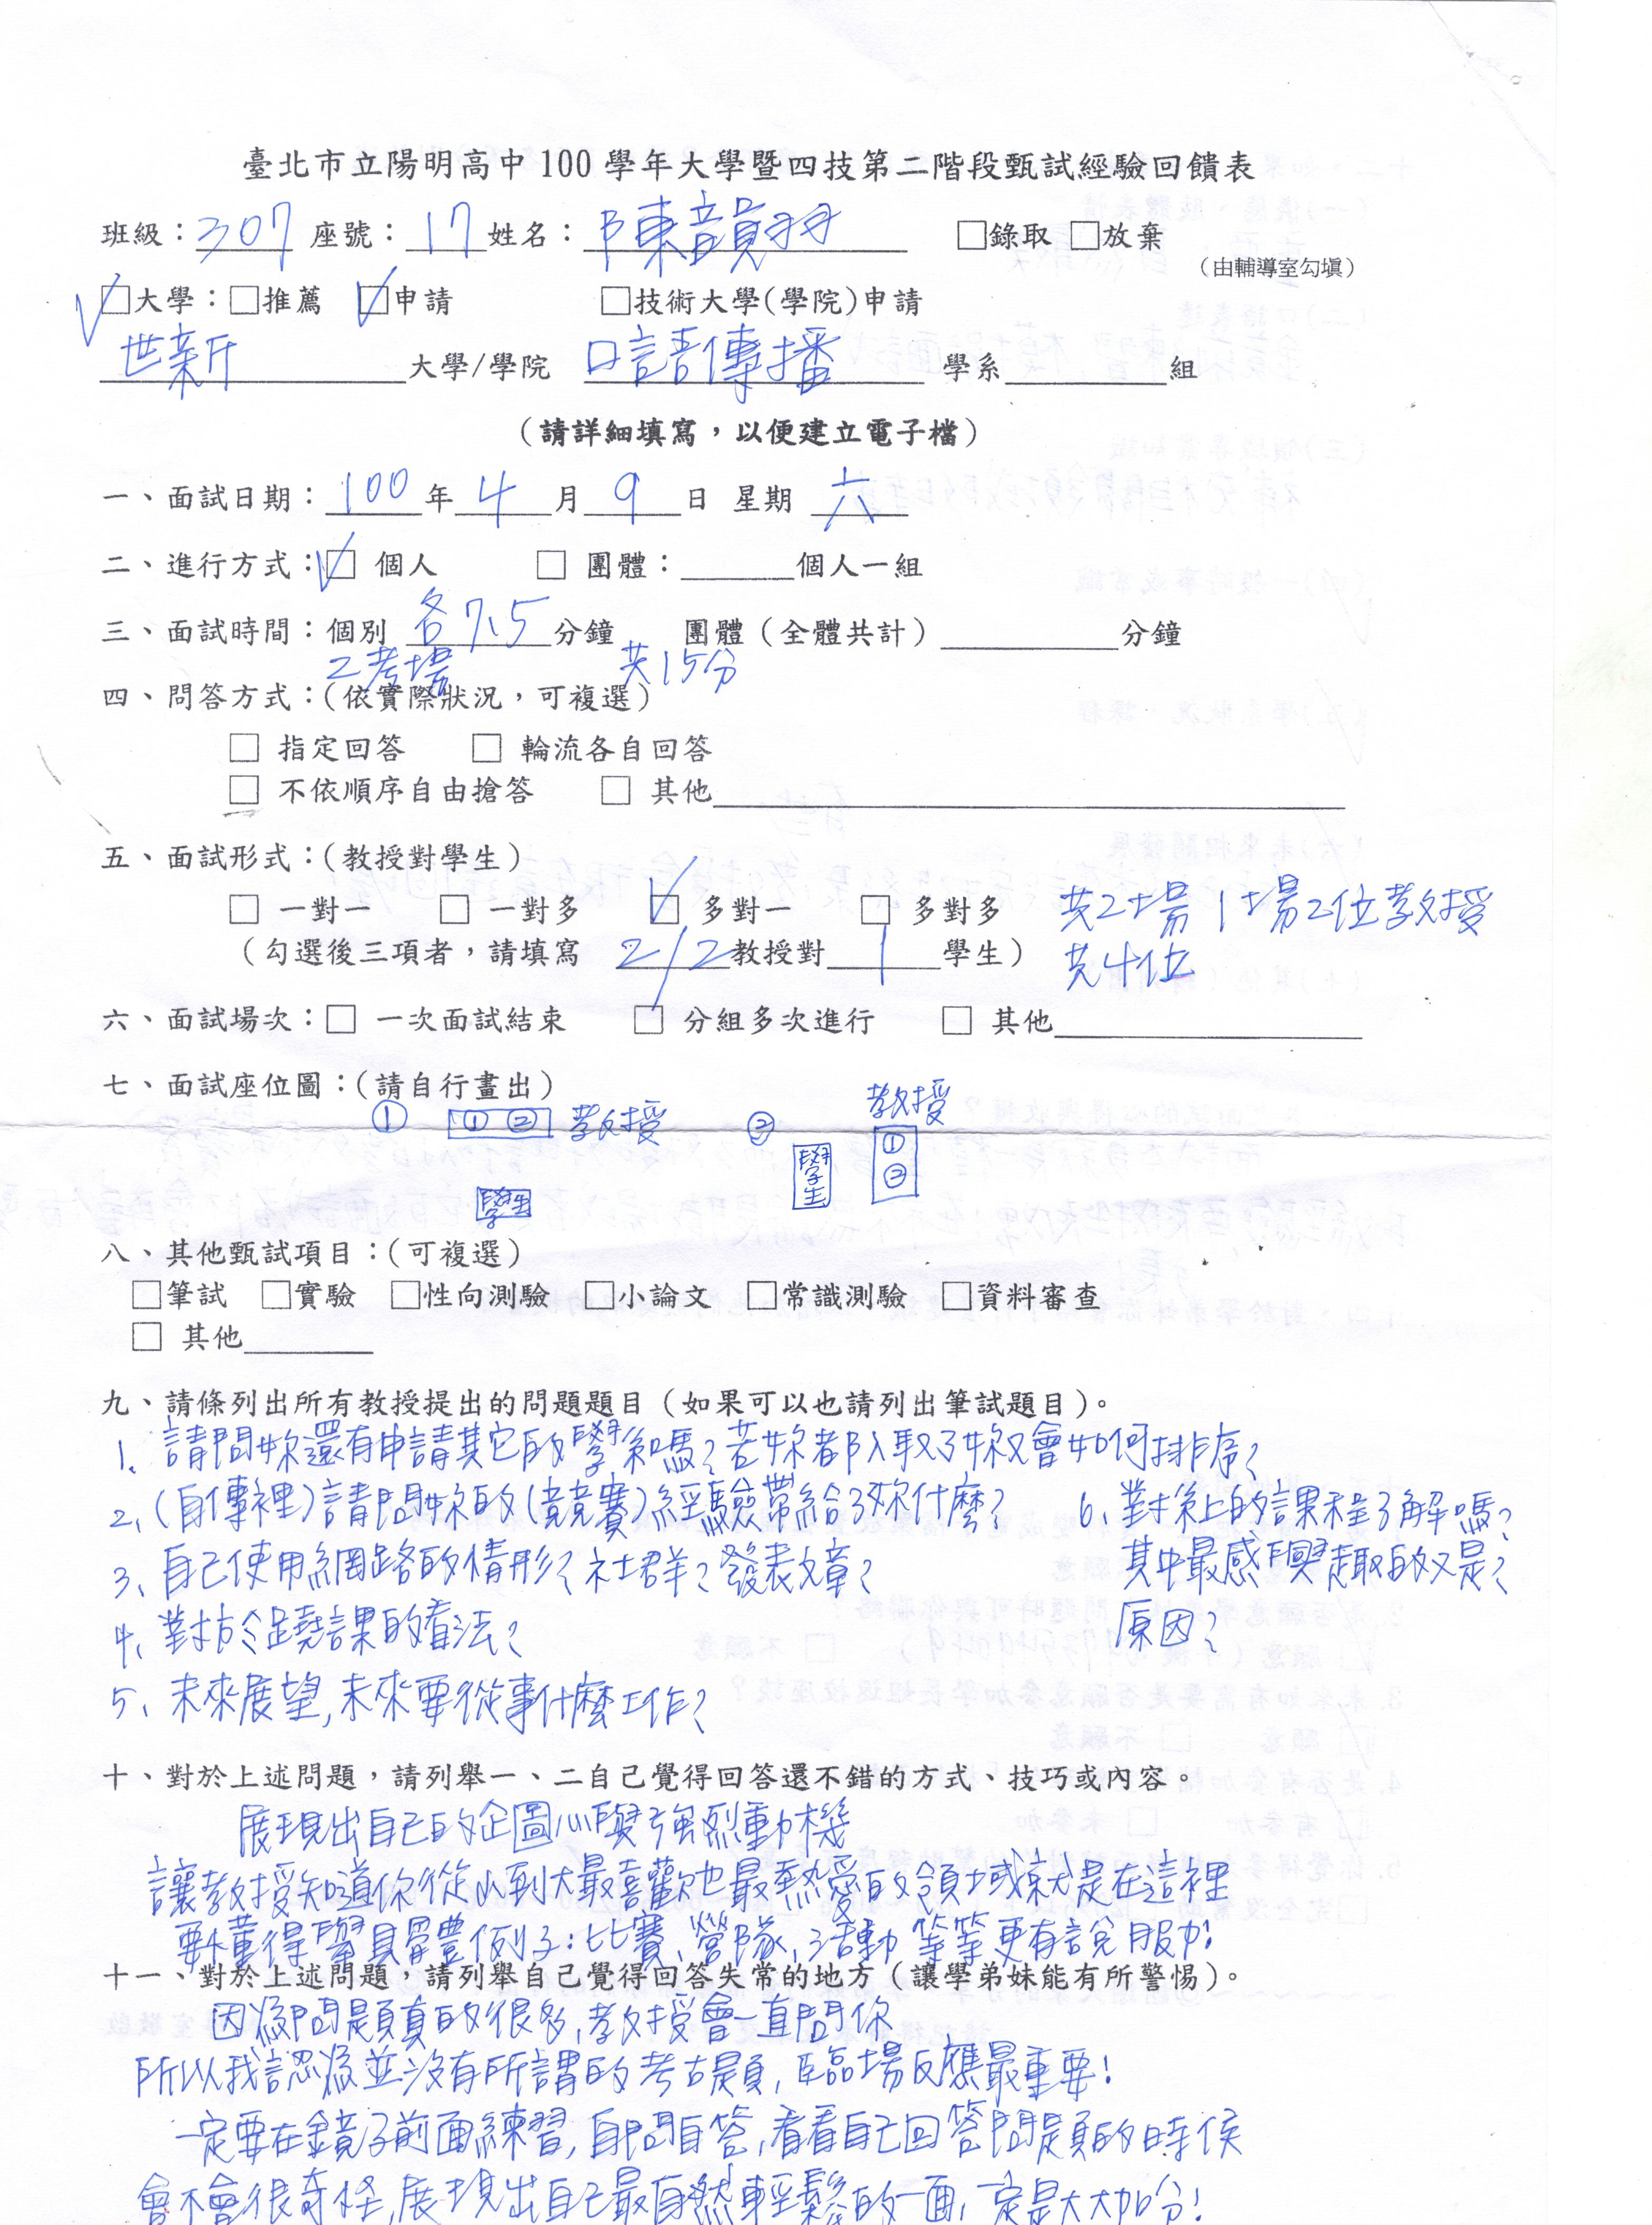 臺北市立陽明高中 100 學年大學暨四技第二階段甄試經驗回饋表
班級：307 座號：17 姓名：陳韻羽 □錄取 □放棄
（由輔導室勾填）
☑大學：□推薦 ☑申請 □技術大學(學院)申請
世新 大學/學院 口語傳播 學系______組
（請詳細填寫，以便建立電子檔）
一、面試日期：100 年 4 月 9 日 星期 六
二、進行方式：☑ 個人 □ 團體：______個人一組
三、面試時間：個別 各7.5 分鐘 團體（全體共計）______分鐘
2考場 共15分
四、問答方式：(依實際狀況，可複選)
□ 指定回答 □ 輪流各自回答
□ 不依順序自由搶答 □ 其他______
五、面試形式：(教授對學生)
□ 一對一 □ 一對多 ☑ 多對一 □ 多對多 共2場 1場2位教授
（勾選後三項者，請填寫 2/2 教授對 1 學生） 共4位
六、面試場次：□ 一次面試結束 ☑ 分組多次進行 □ 其他______
七、面試座位圖：(請自行畫出)
① ① ② 教授 ② 教授
① ②
學生 學生
八、其他甄試項目：(可複選)
□筆試 □實驗 □性向測驗 □小論文 □常識測驗 □資料審查
□ 其他______
九、請條列出所有教授提出的問題題目（如果可以也請列出筆試題目）。
1、請問妳還有申請其它的學系嗎？若妳都錄取了妳又會如何排序？
2、(自傳裡)請問妳的(競賽)經驗帶給了妳什麼？
3、自己使用網路的情形？社群？發表文章？
4、對於蹺課的看法？
5、未來展望,未來要從事什麼工作？
6、對系上的課程了解嗎？
其中最感興趣的又是？
原因？
十、對於上述問題，請列舉一、二自己覺得回答還不錯的方式、技巧或內容。
展現出自己的企圖心與強烈動機
讓教授知道你從小到大最喜歡也最熱愛的領域就是在這裡
要懂得舉具體例子：比賽、營隊、活動 等等更有說服力！
十一、對於上述問題，請列舉自己覺得回答失常的地方（讓學弟妹能有所警惕）。
因為問題真的很多,教授會一直問你
所以我認為並沒有所謂的考古題,臨場反應最重要！
一定要在鏡子前面練習,自問自答,看看自己回答問題的時候
會不會很奇怪,展現出自己最自然輕鬆的一面,一定是大大加分！